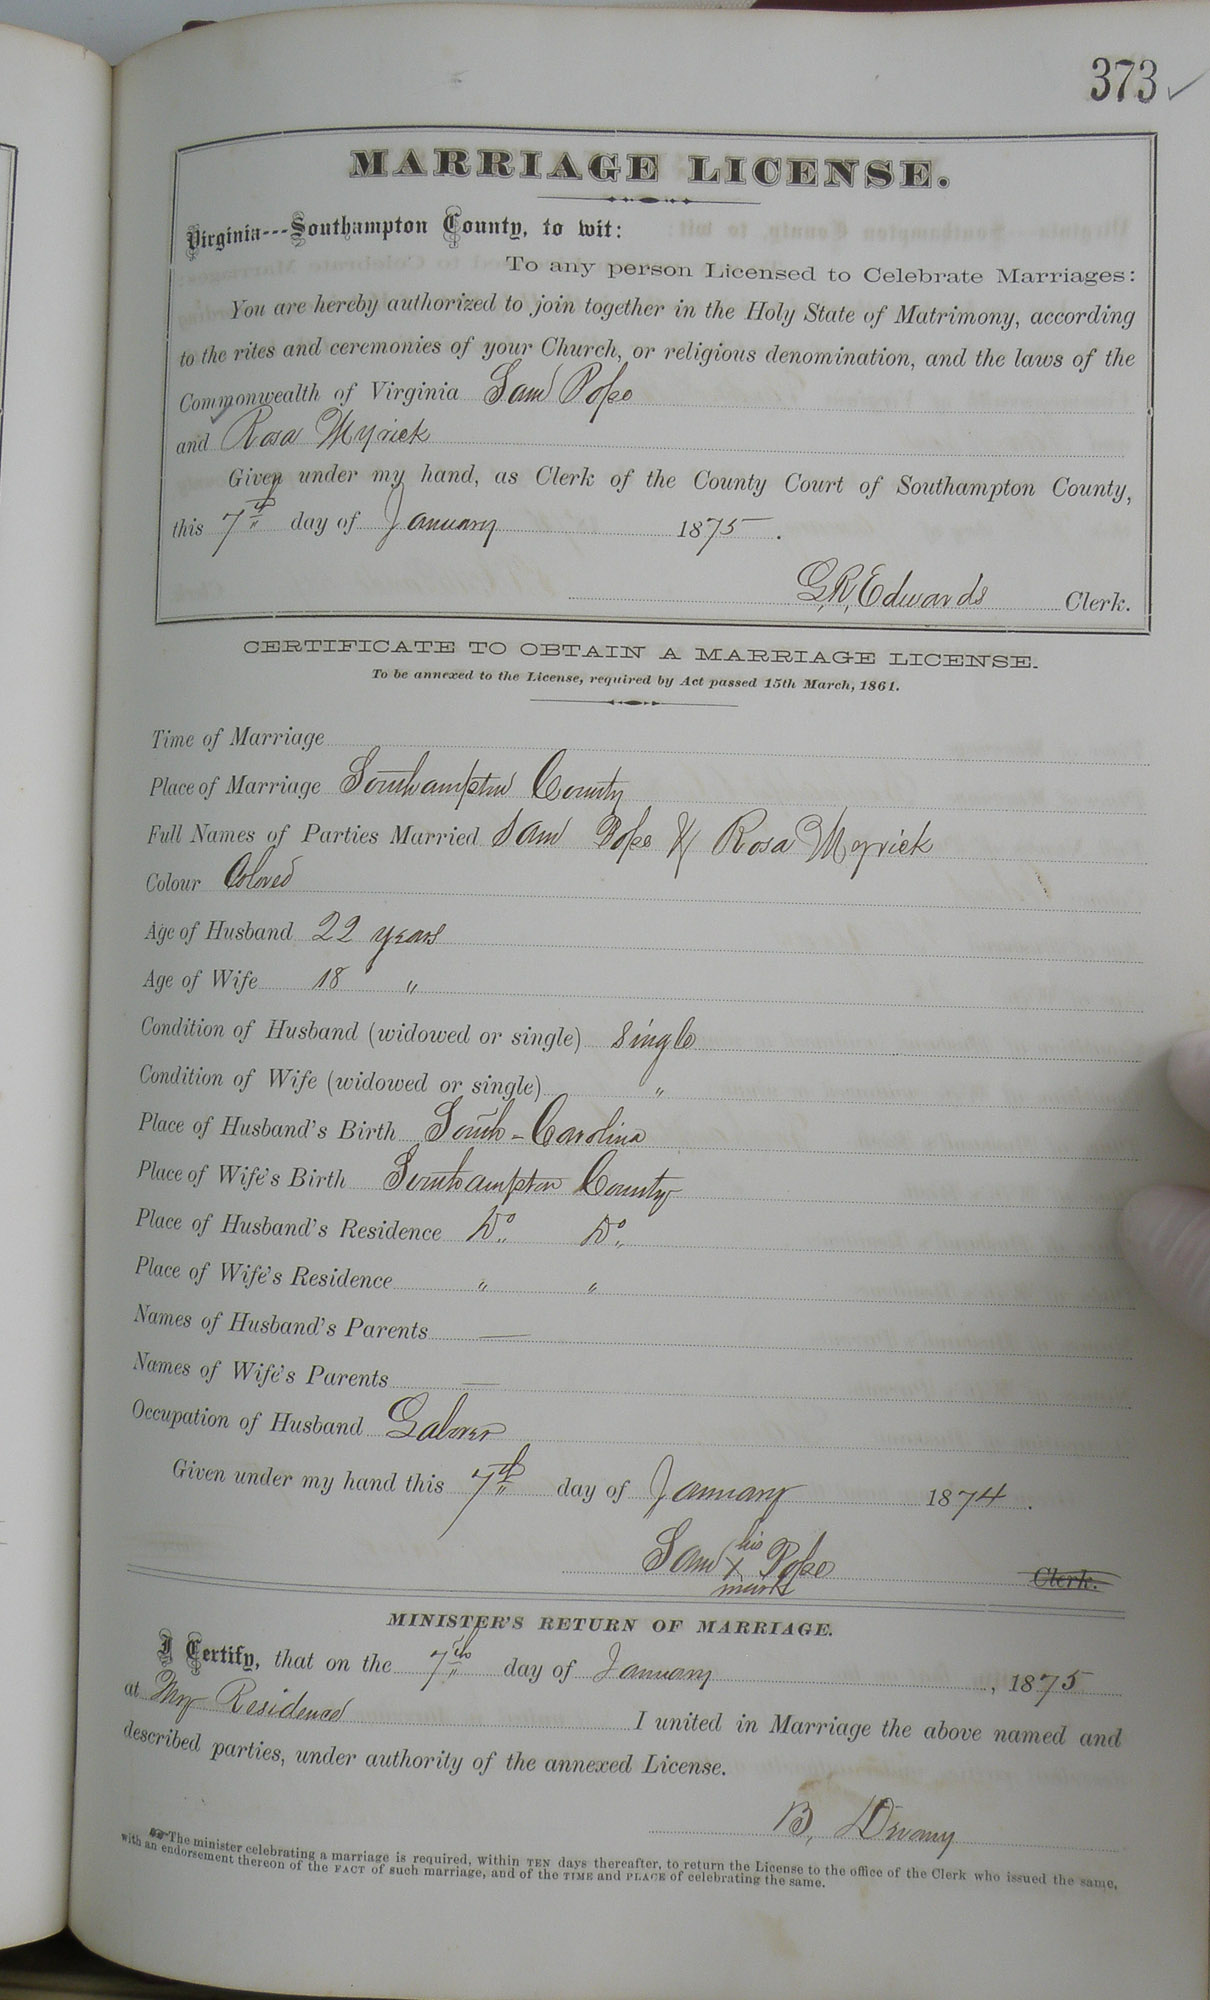 373 ✓
MARRIAGE LICENSE.
Virginia---Southampton County, to wit:
To any person Licensed to Celebrate Marriages:
You are hereby authorized to join together in the Holy State of Matrimony, according
to the rites and ceremonies of your Church, or religious denomination, and the laws of the
Commonwealth of Virginia Sam Pope
and Rosa Myrick
Given under my hand, as Clerk of the County Court of Southampton County,
this 7th day of January 1875.
G.R. Edwards Clerk.
CERTIFICATE TO OBTAIN A MARRIAGE LICENSE.
To be annexed to the License, required by Act passed 15th March, 1861.
Time of Marriage
Place of Marriage Southampton County
Full Names of Parties Married Sam Pope & Rosa Myrick
Colour Colored
Age of Husband 22 years
Age of Wife 18 "
Condition of Husband (widowed or single) single
Condition of Wife (widowed or single) "
Place of Husband's Birth South-Carolina
Place of Wife's Birth Southampton County
Place of Husband's Residence Do. Do.
Place of Wife's Residence " "
Names of Husband's Parents —
Names of Wife's Parents —
Occupation of Husband Laborer
Given under my hand this 7th day of January 1874.
Sam his X mark Pope Clerk.
MINISTER'S RETURN OF MARRIAGE.
I Certify, that on the 7th day of January, 1875
at My Residence I united in Marriage the above named and
described parties, under authority of the annexed License.
B,
The minister celebrating a marriage is required, within TEN days thereafter, to return the License to the office of the Clerk who issued the same,
with an endorsement thereon of the FACT of such marriage, and of the TIME and PLACE of celebrating the same.